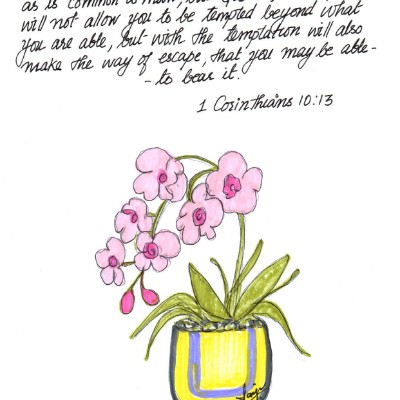 as is common to man, but
will not allow you to be tempted beyond what
you are able, but with the temptation will also
make the way of escape, that you may be able-
- to bear it.
1 Corinthians 10:13